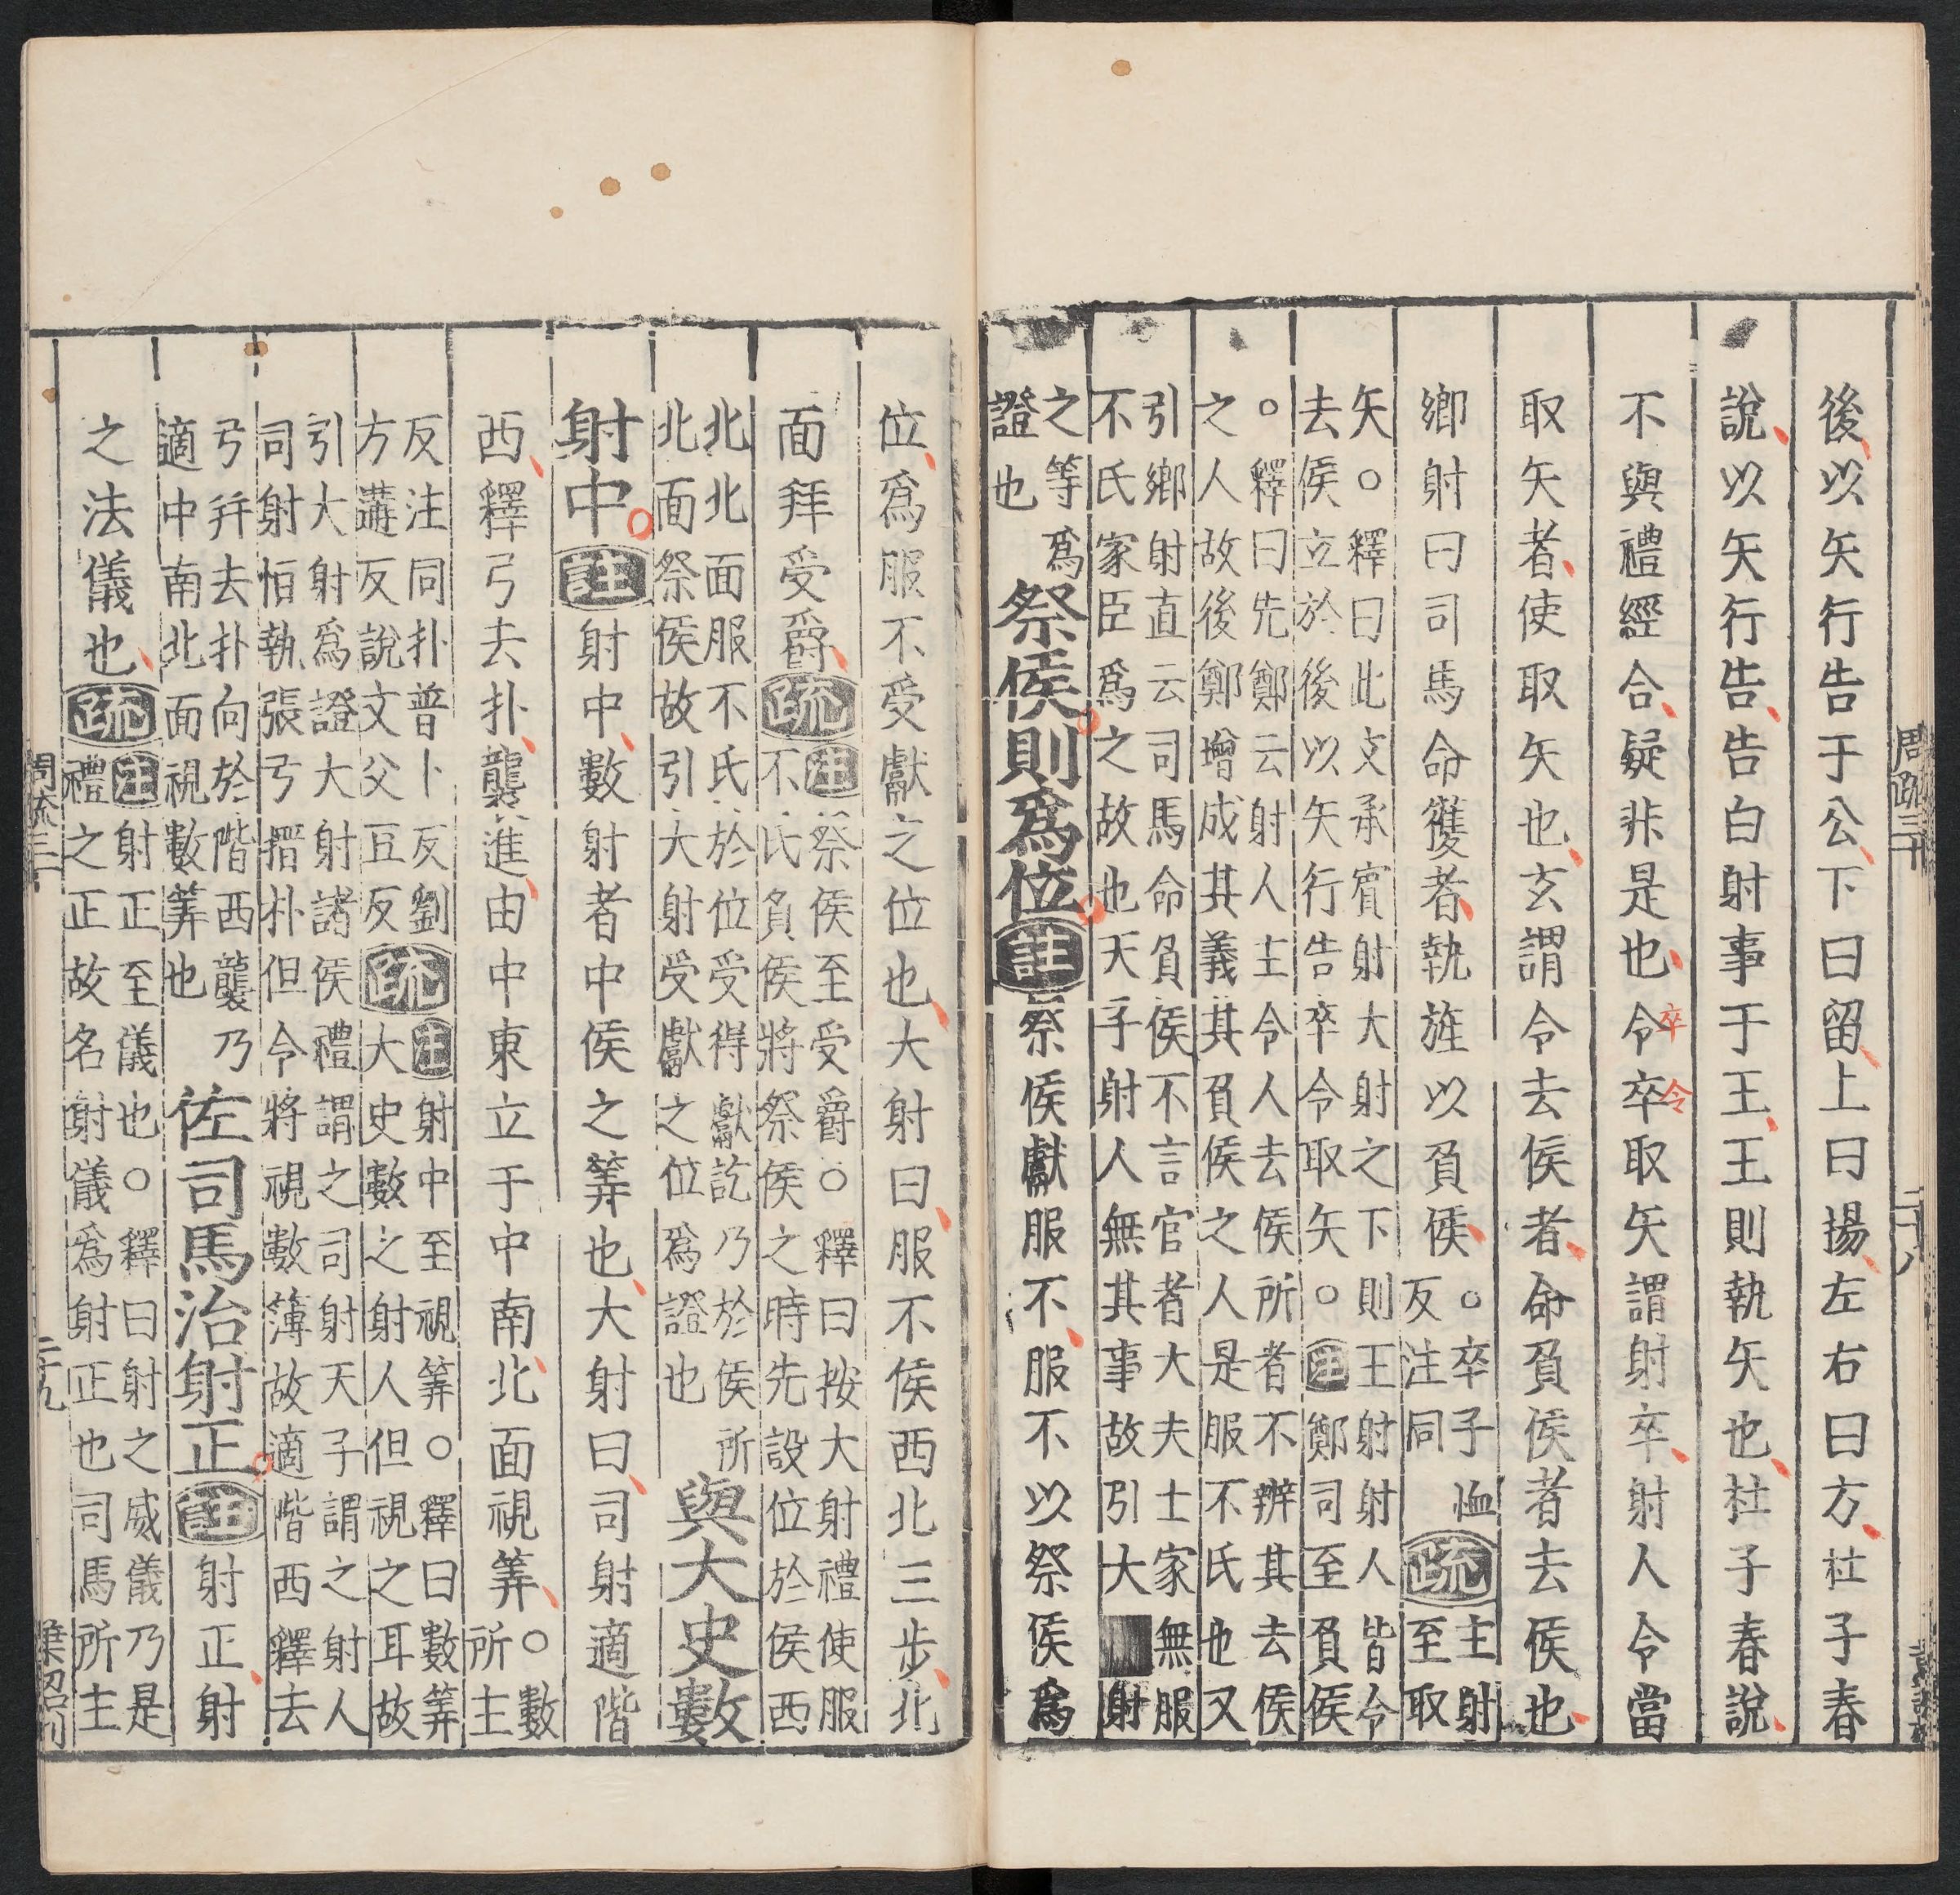 後以矢行告于公下曰留上曰揚左右曰方杜子春
說以矢行告告白射事于王王則執矢也杜子春說
不與禮經合疑非是也令卒取矢謂射卒射人令當
卒令
取矢者使取矢也玄謂令去侯者命負侯者去侯也
鄉射曰司馬命獲者執旌以負侯
○卒子恤
反注同
疏
主射
至取
矢○釋曰此文承賓射大射之下則王射射人皆令
去侯立於後以矢行告卒令取矢○注鄭司至負侯
○釋曰先鄭云射人主令人去侯所者不辨其去侯
之人故後鄭增成其義其負侯之人是服不氏也又
引鄉射直云司馬命負侯不言官者大夫士家無服
不氏家臣爲之故也天子射人無其事故引大射
之等爲
證也
祭侯則爲位註祭侯獻服不服不以祭侯爲
周疏三十
二十八
位爲服不受獻之位也大射曰服不侯西北三步北
面拜受爵疏
注祭侯至受爵○釋曰按大射禮使服
不氏負侯將祭侯之時先設位於侯西
北北面服不氏於位受得獻訖乃於侯所
北面祭侯故引大射受獻之位爲證也
與大史數
射中註射中數射者中侯之筭也大射曰司射適階
西釋弓去扑襲進由中東立于中南北面視筭
○數
所主
反注同扑普卜反劉
方遘反說文父豆反
疏
注射中至視筭○釋曰數筭
大史數之射人但視之耳故
引大射爲證大射諸侯禮謂之司射天子謂之射人
司射恒執張弓搢扑但令將視數簿故適階西釋去
弓幷去扑向於階西襲乃
適中南北面視數筭也
佐司馬治射正註射正射
之法儀也疏
注射正至儀也○釋曰射之威儀乃是
禮之正故名射儀爲射正也司馬所主
周疏三十
二十九
葉召刊